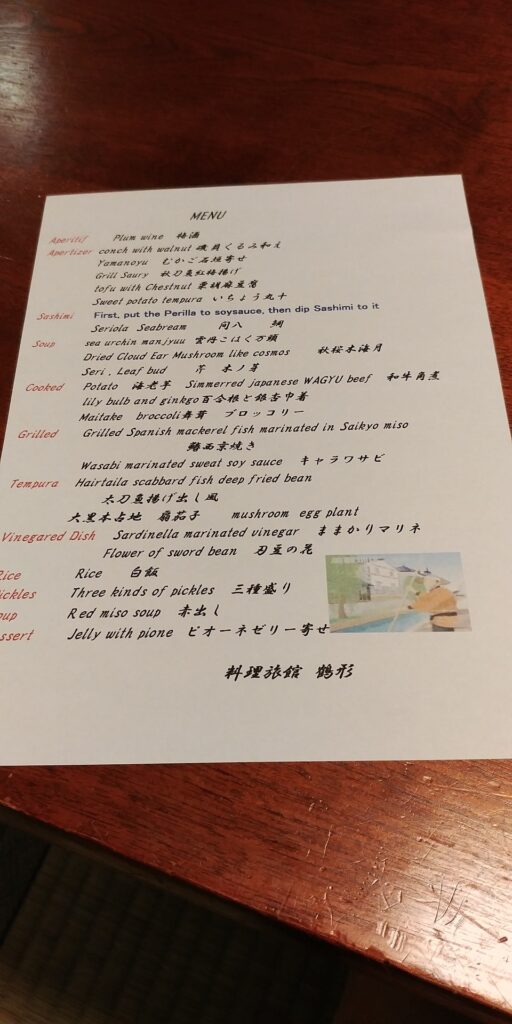 MENU
Aperitif Plum wine 梅酒
Apertizer conch with walnut 磯貝くるみ和え
Yamanoyu むかご石垣寄せ
Grill Saury 秋刀魚紅梅揚げ
tofu with Chestnut 栗胡麻豆腐
Sweet potato tempura いちょう丸十
Sashimi First, put the Perilla to soysauce, then dip Sashimi to it
Seriola Seabream 間八 鯛
Soup sea urchin manjyuu 雲丹こはく万頭
Dried Cloud Ear Mushroom like cosmos 秋桜木海月
Seri , Leaf bud 芹 木ノ芽
Cooked Potato 海老芋 Simmerred japanese WAGYU beef 和牛角煮
lily bulb and ginkgo百合根と銀杏巾着
Maitake broccoli舞茸 ブロッコリー
Grilled Grilled Spanish mackerel fish marinated in Saikyo miso
鰆西京焼き
Wasabi marinated sweat soy sauce キャラワサビ
Tempura Hairtaila scabbard fish deep fried bean
太刀魚揚げ出し風
大黒本占地 扇茄子 mushroom egg plant
Vinegared Dish Sardinella marinated vinegar ままかりマリネ
Flower of sword bean 刀豆の花
Rice Rice 白飯
ickles Three kinds of pickles 三種盛り
oup Red miso soup 赤出し
essert Jelly with pione ピオーネゼリー寄せ
料理旅館 鶴形